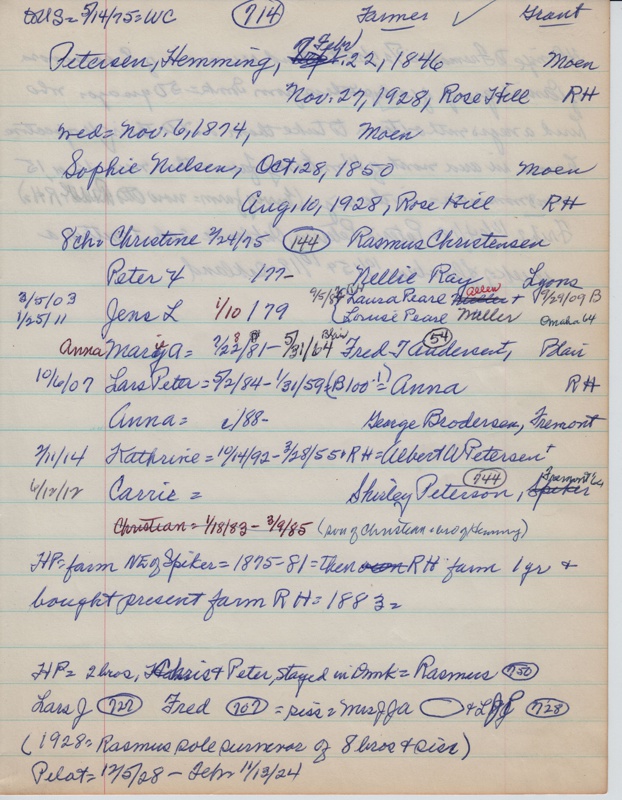 US = 5/14/75 = WC 714 Farmer ✓ Grant
Petersen, Hemming, Febr 22, 1846 Moen
Nov. 27, 1928, Rose Hill RH
Wed = Nov. 6, 1874, Moen
Sophie Nielsen, Oct. 28, 1850 Moen
Aug. 10, 1928, Rose Hill RH
8ch = Christine 2/24/75 144 Rasmus Christensen
Peter 4 /77- Nellie Ray Lyons
3/5/03 Laura Pearl Allen + 9/29/09 B
1/25/11 Jens L 1/10/79 Louise Pearl Miller Omaha 64
Anna Maria = 2/22/81 - 5/31/64 Blair Fred T Andersen +, 54 Blair
10/6/07 Lars Peter = 5/2/84 - 1/31/59 (B100-1) = Anna RH
Anna = /88- George Brodersen, Fremont
2/11/14 Kathrine = 10/14/92 - 3/28/55 + RH = Albert W Petersen +
6/12/12 Carrie = Shirley Peterson, 744 Fremont '64 Spiker
Christian = 1/18/83 - 3/9/85 (son of Christian = bro of Hemming)
HP = farm NE of Spiker = 1875-81 = then RH farm 1 yr +
bought present farm RH = 1883 =
HP = 2 bros, Chris + Peter, stayed in Dmk = Rasmus 750
Lars J 727 Fred 707 = sis = Mrs JJA + L 728
(1928 = Rasmus sole survivor of 8 bros + sis)
Pilot = 12/5/28 - Febr 11/13/24